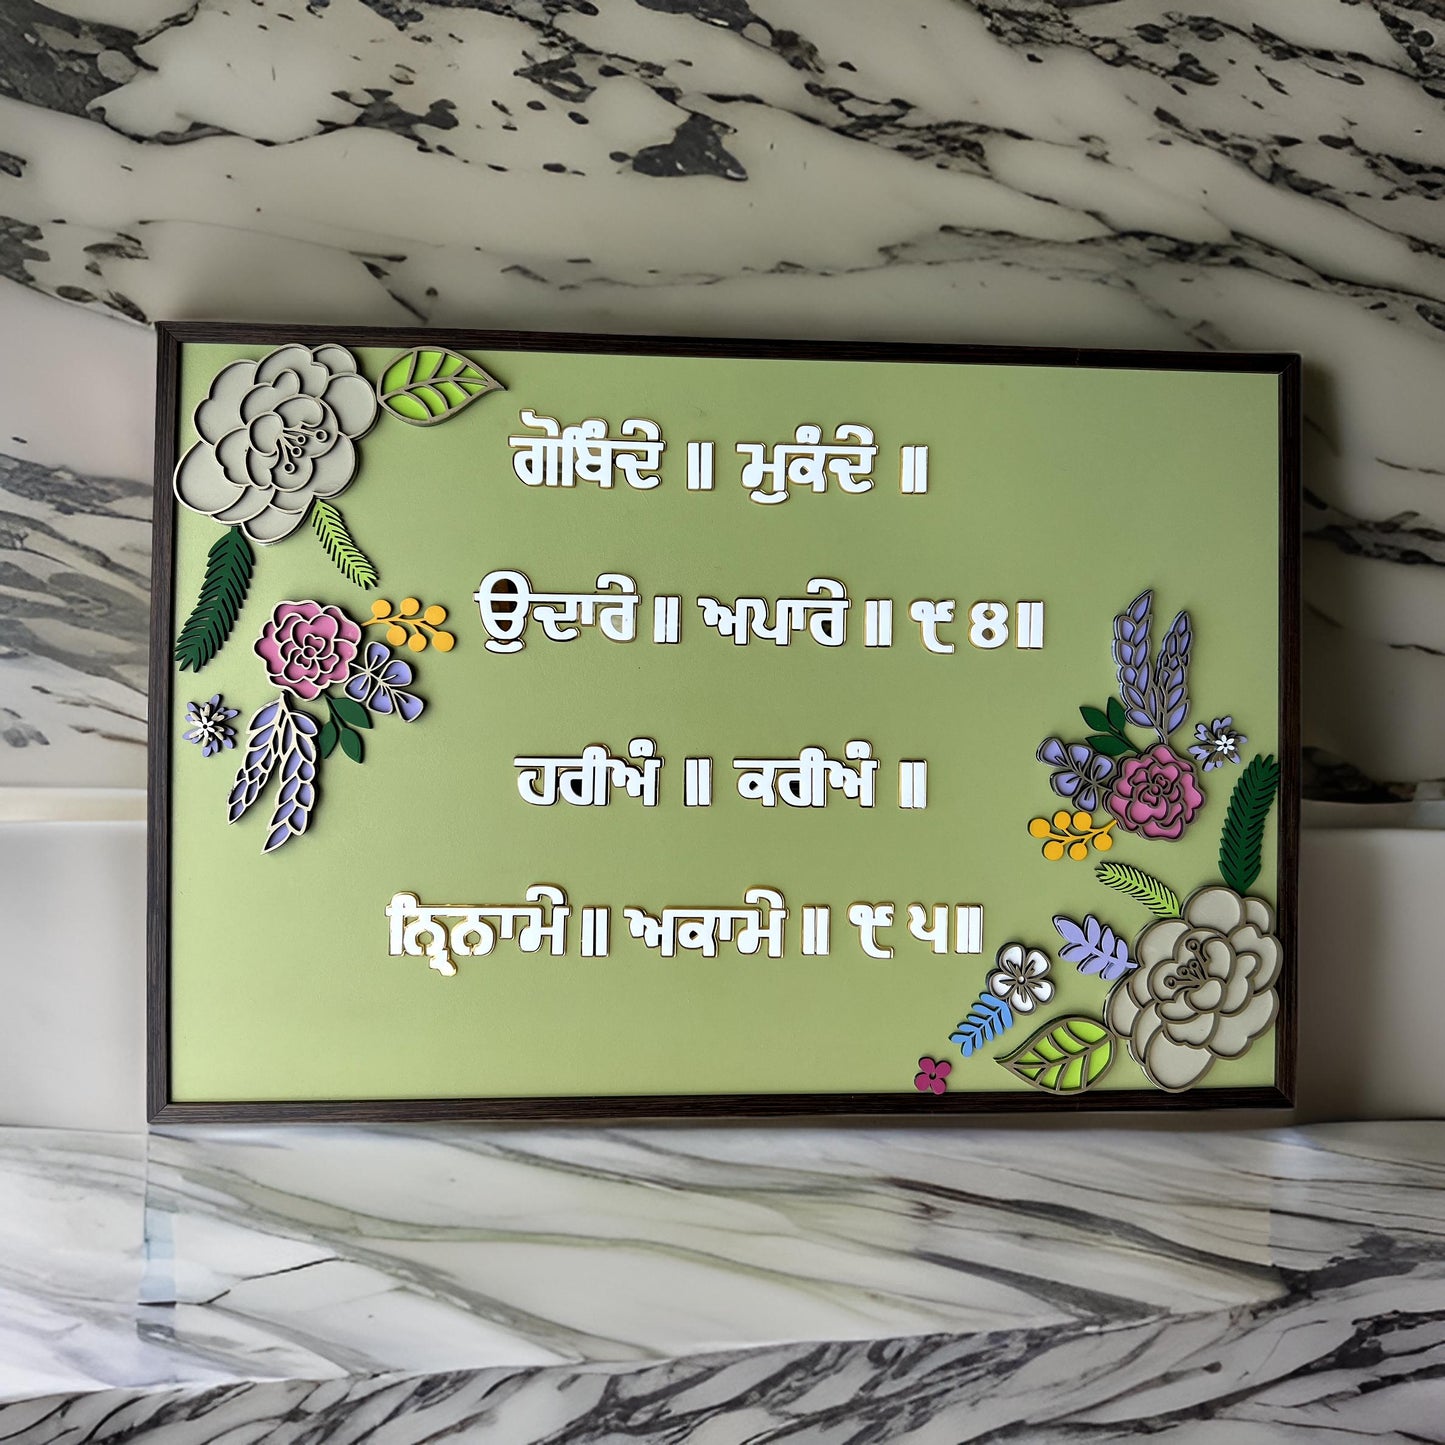 ਗੋਬਿੰਦੇ ॥ ਮੁਕੰਦੇ ॥
ਉਦਾਰੇ ॥ ਅਪਾਰੇ ॥ ੯੪॥
ਹਰੀਅੰ ॥ ਕਰੀਅੰ ॥
ਨ੍ਰਿਨਾਮੇ ॥ ਅਕਾਮੇ ॥ ੯੫॥